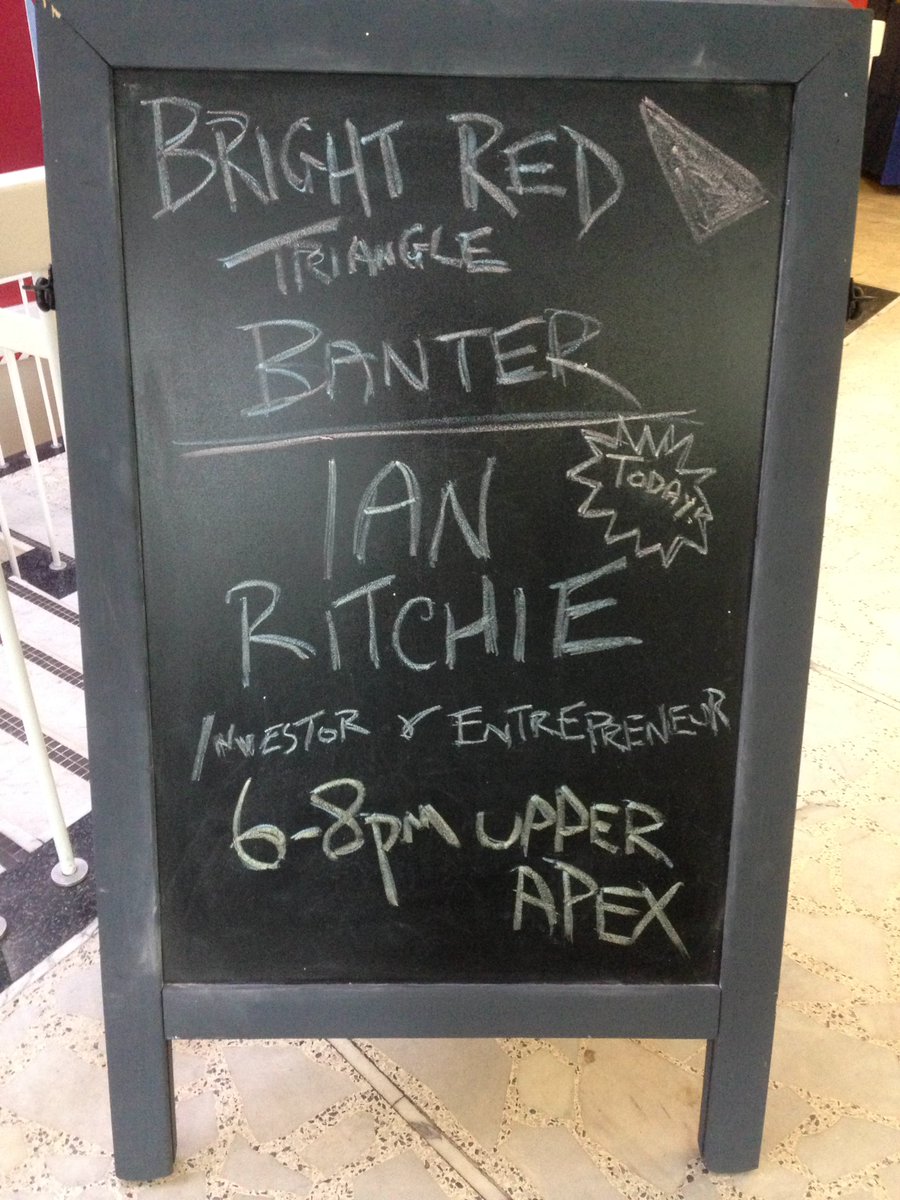 BRIGHT RED
TRIANGLE
BANTER
TODAY!
IAN
RITCHIE
INVESTOR & ENTREPRENEUR
6-8pm UPPER
APEX